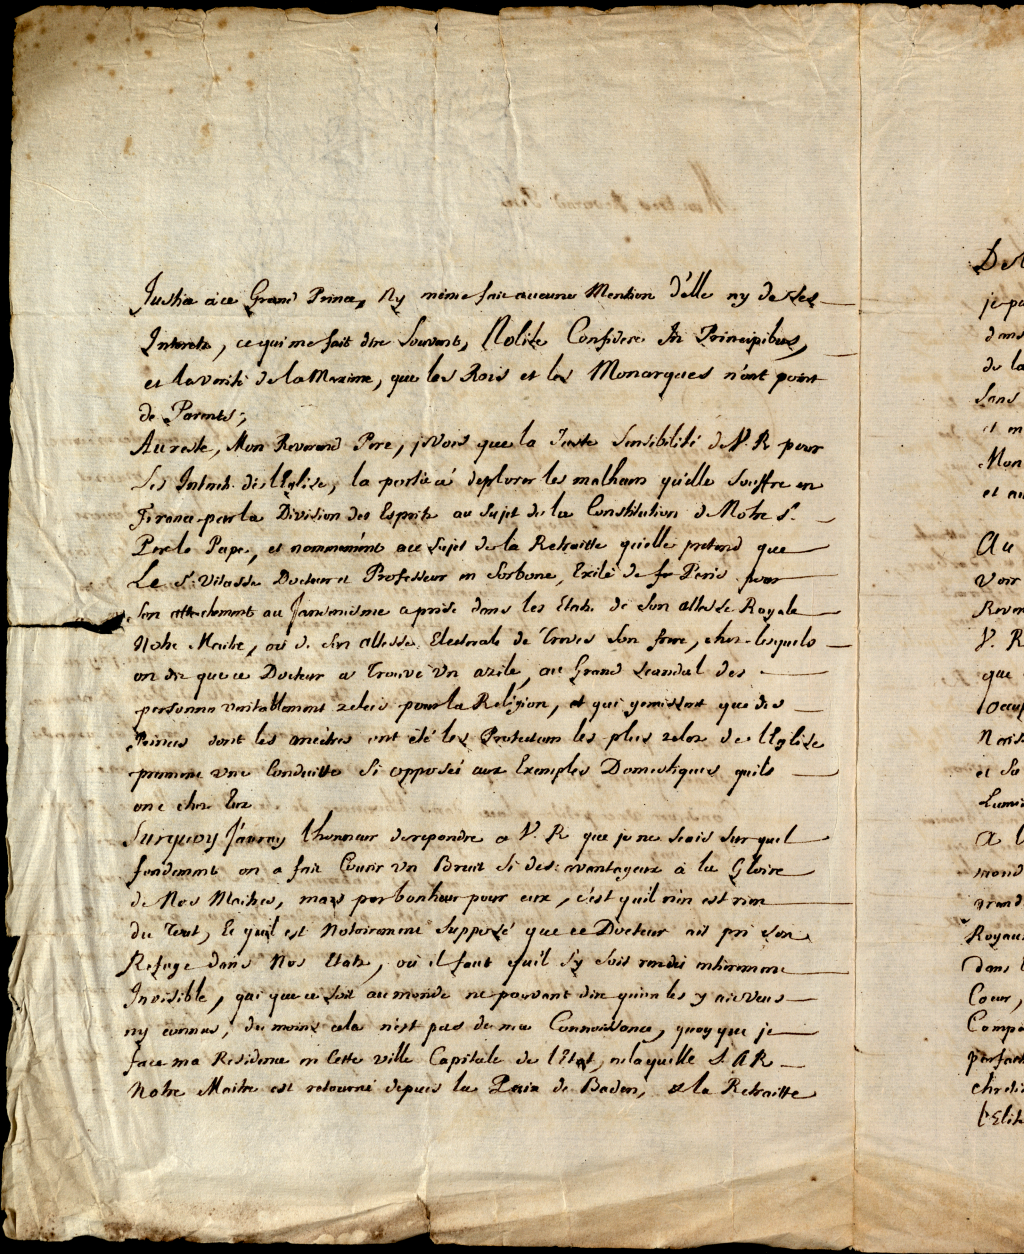 Justice a ce Grand Prince, Ny même fait aucune Mention d'elle ny de ses
Interets, ce qui me fait dire Souvent, Nolite Confidere In Principibus,
et la verité de la Maxime, que les Rois et les Monarques n'ont point
de Parents;
Au reste, Mon Reverend Pere, je vois que la Juste Sensibilité de V. R pour
Les Interets de l'Eglise, la porté a deplorer les malheurs qu'elle Souffre en
France par la Division des Esprits au Sujet de la Constitution de Notre St.
Pere le Pape, et nommement au Sujet de la Retraitte qu'elle pretend que
Le Sr. Vitasse Docteur et Professeur en Sorbone, Exilé de Paris pour
Son attachement au Jansenisme a prise dans les Etats de Son Altesse Royale
Notre Maitre, où de Son altesse Electorale de Treves Son frere, chez lesquels
on dit que ce Docteur a Trouvé Un azile, au Grand Scandal des
personnes veritablement zelées pour la Religion, et qui gemissent que des
Princes dont les ancêtres ont été les Protecteurs les plus zelez de l'Eglise
prennent une Conduitte Si opposée aux Exemples Domestiques qu'ils
ont chez Eux
Surquoy J'auray l'honneur de repondre a V. R que je ne scais sur quel
fondement on a fait Courir Un Bruit Si des-avantageux à la Gloire
de Nos Maitres, mais par bonheur pour eux, c'est qu'il n'en est rien
du Tout, Et qu'il est Notoirement Supposé que ce Docteur ait pri Son
Refuge dans Nos Etats, où il faut qu'il s'y soit rendu entierement
Invisible, qui que ce soit au monde ne pouvant dire qu'on les y aie veus
ny connus, du moins cela n'est pas de ma Connoissance, quoy que je
face ma Residence en Cette ville Capitale de l'Etat, en laquelle S. A R
Notre Maitre est retourné depuis la Paix de Baden, et la Retraitte
je
dans
de la
Sans
et
Mon
et au
Au
voir
V. R
que
et
a
dans
Coeur,